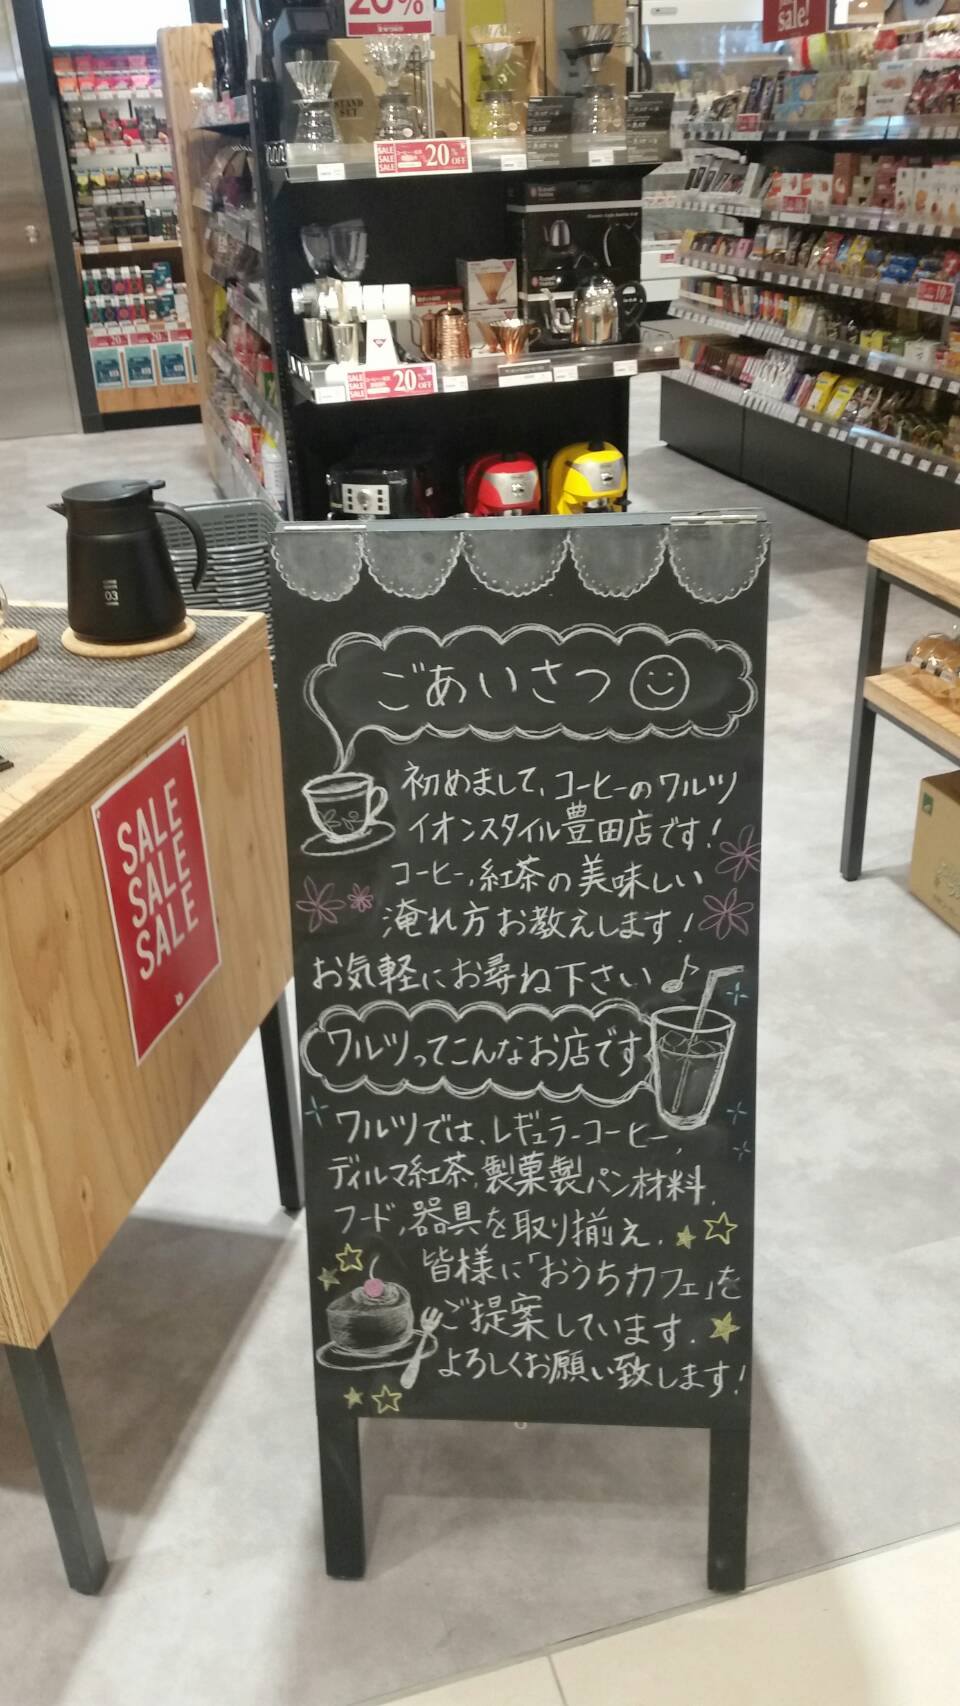 20%
sale!
STAND SET
SALE SALE SALE 20% OFF
SALE SALE SALE 20% OFF
10%
03
SALE
SALE
SALE
ごあいさつ
初めまして、コーヒーのワルツ
イオンスタイル豊田店です!
コーヒー、紅茶の美味しい
淹れ方お教えします!
お気軽にお尋ね下さい♪
ワルツってこんなお店です
ワルツでは、レギュラーコーヒー、
ディルマ紅茶、製菓製パン材料、
フード、器具を取り揃え、
皆様に「おうちカフェ」を
ご提案しています。
よろしくお願い致します!